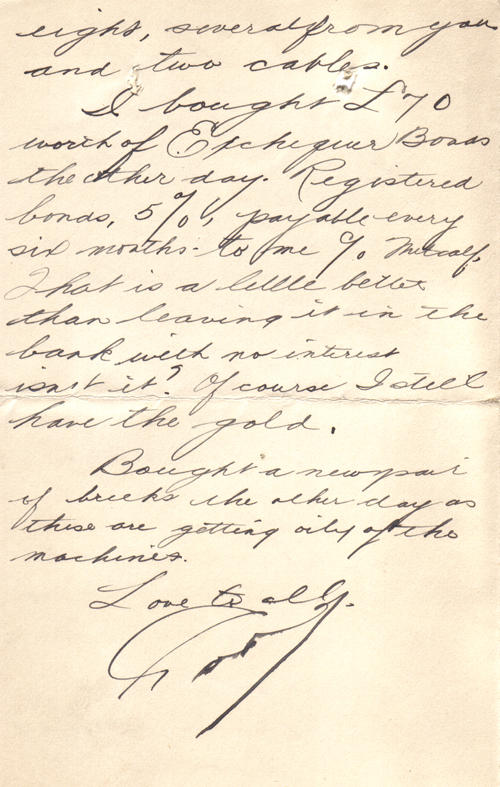 eight, several from you
and two cables.
I bought £70
worth of Exchequer Bonds
the other day. Registered
bonds, 5%, payable every
six months to me % Metcalf.
That is a little better
than leaving it in the
bank with no interest
isn't it? Of course I still
have the gold.
Bought a new pair
of breeks the other day as
these are getting oily of the
machines.
Love to all.